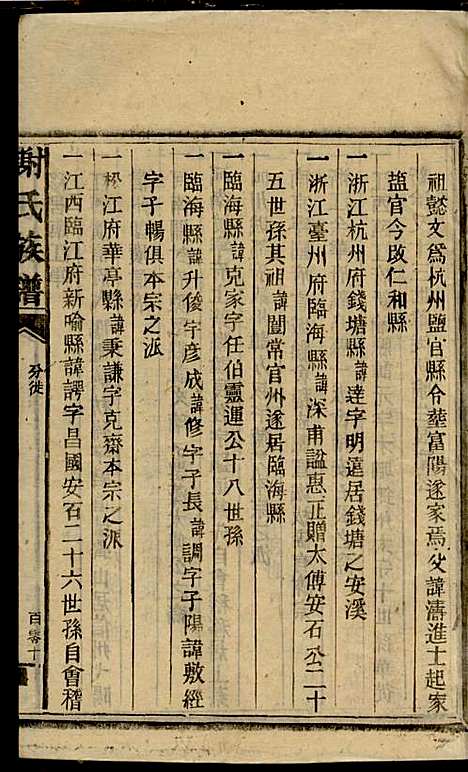 祖懿文為杭州鹽官縣令塟富陽遂家焉父諱濤進士起家
鹽官今改仁和縣
一浙江杭州府錢塘縣諱達字明遠居錢塘之安溪
一浙江臺州府臨海縣諱深甫謚惠正贈太傅安石公二十
五世孫其祖諱闓常官州遂居臨海縣
一臨海縣諱克家字任伯靈運公十八世孫
一臨海縣諱升俊字彥成諱修字子長諱調字子陽諱敷經
字子暢俱本宗之派
一松江府華亭縣諱秉謙字克齋本宗之派
一江西臨江府新喻縣諱諤字昌國安石二十六世孫自會稽
謝氏族譜
分徙
百零十